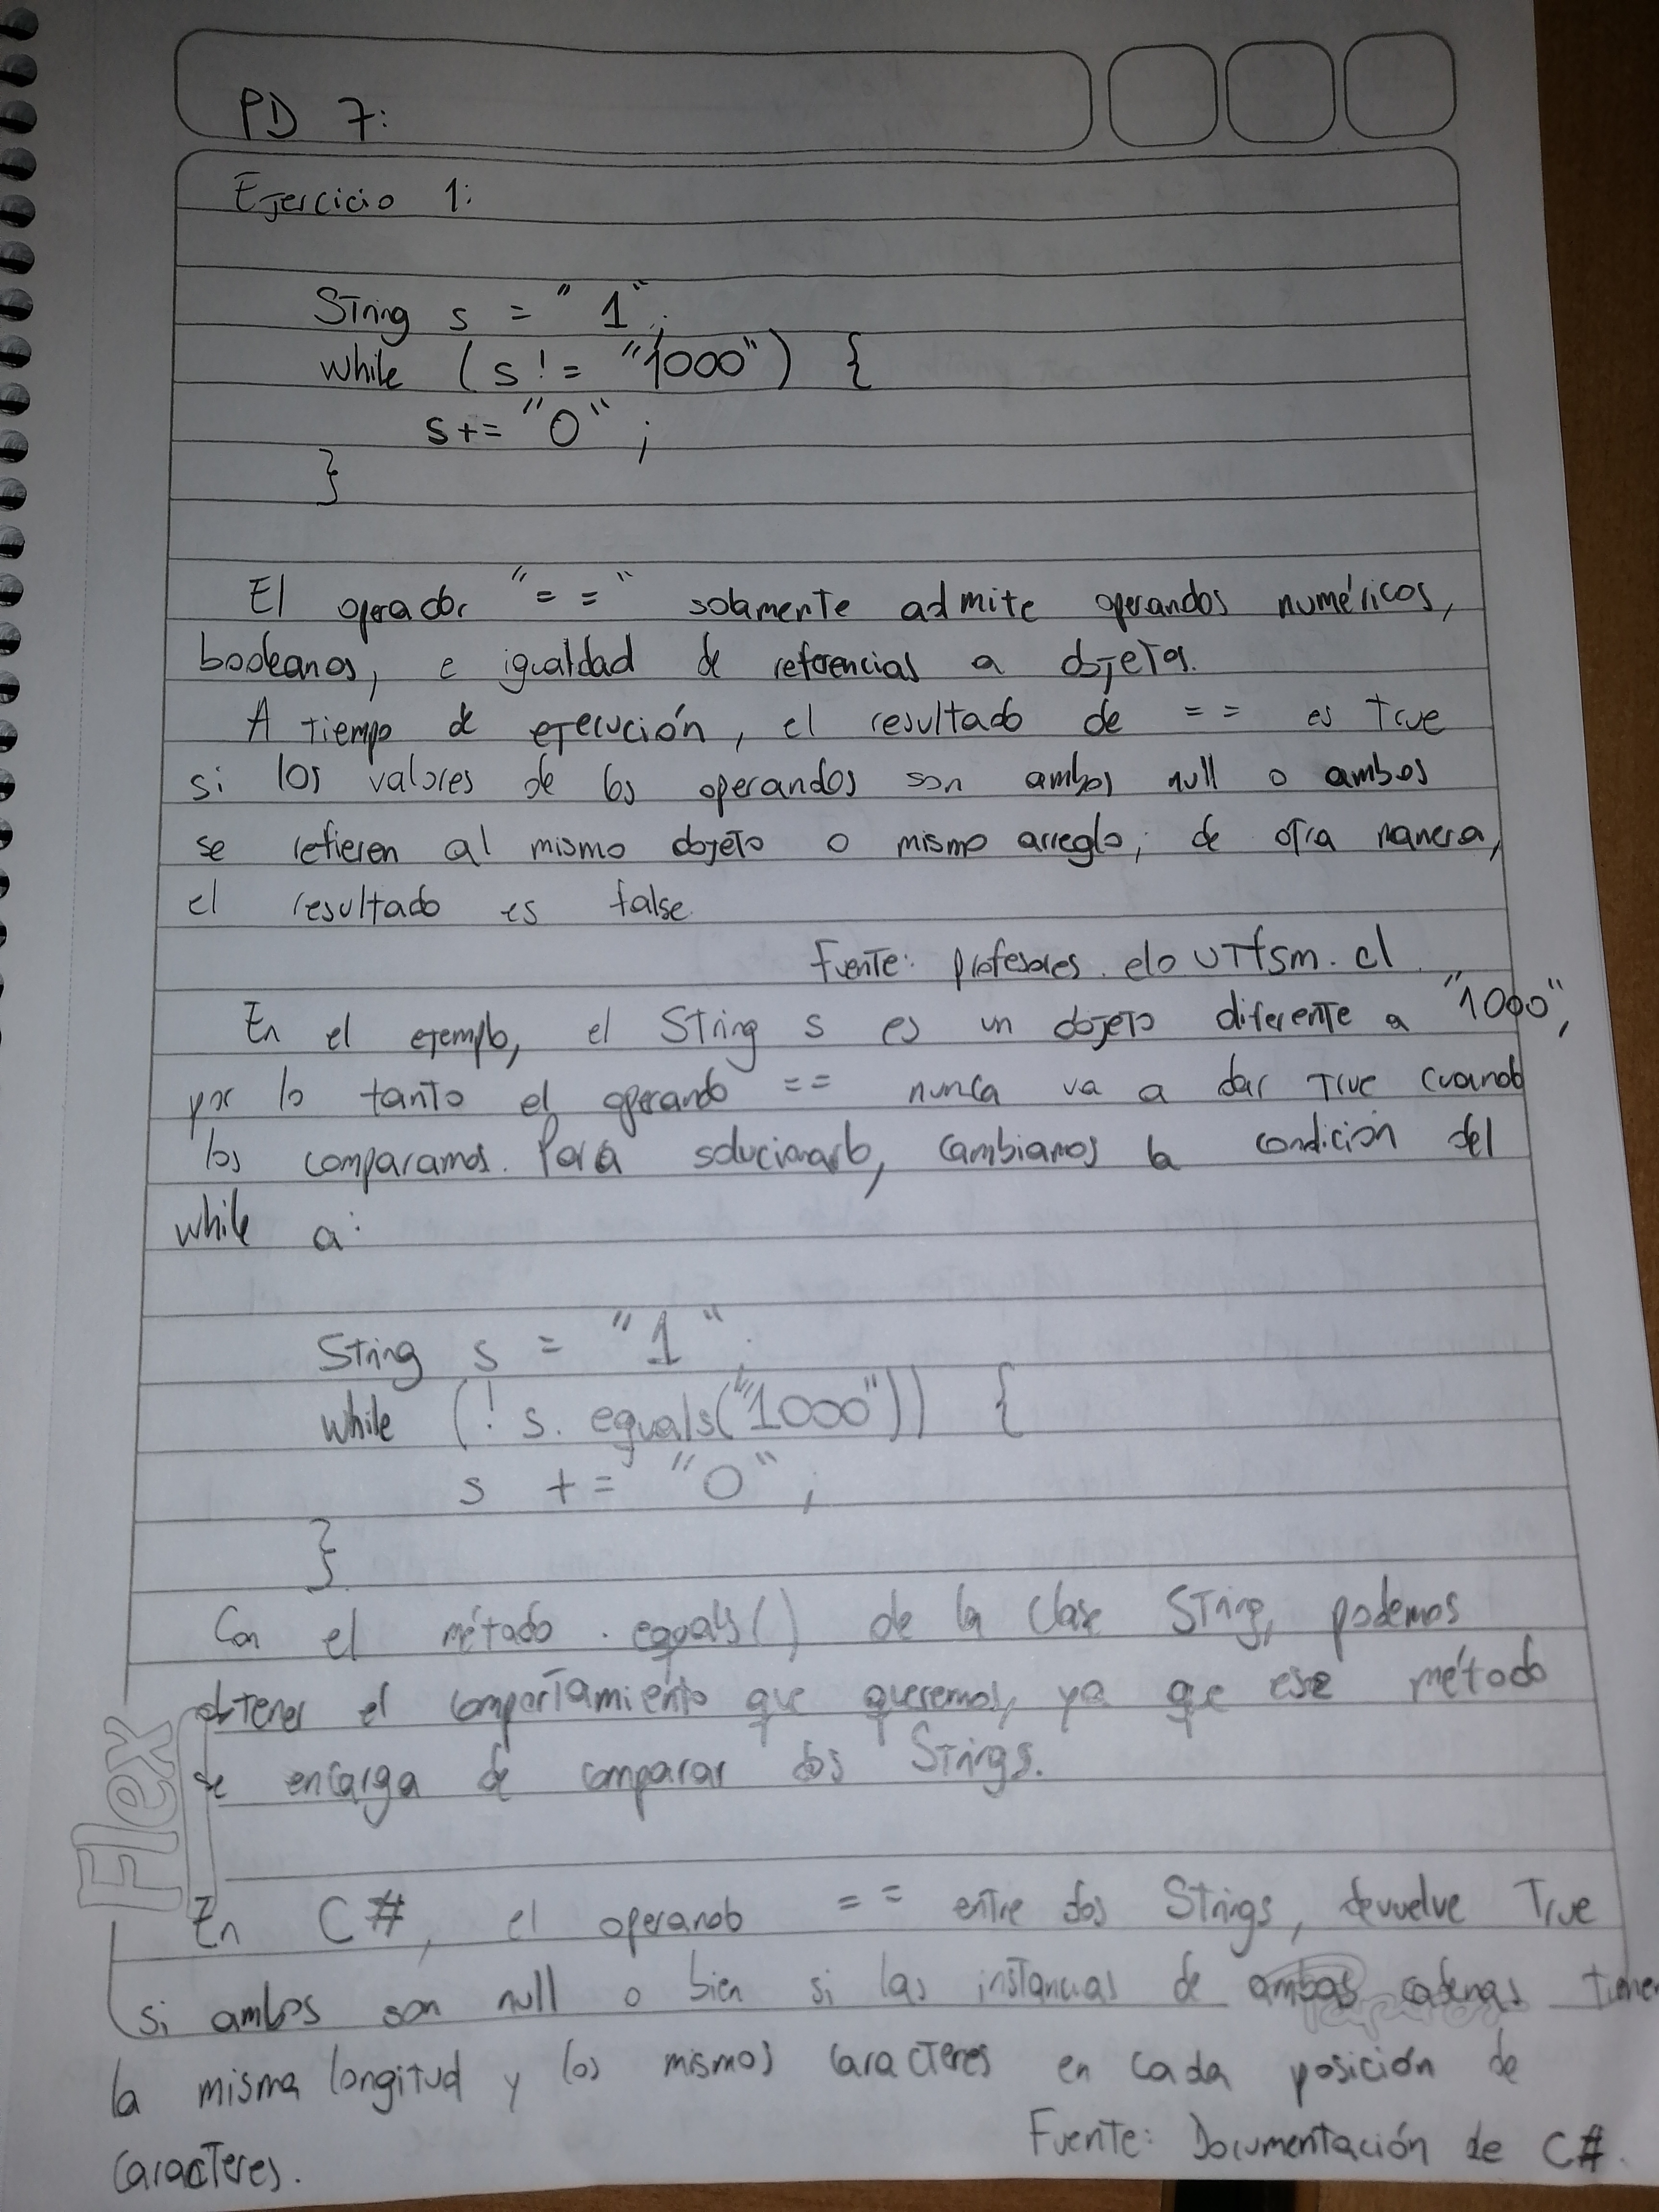 PD 7:
Ejercicio 1:
String s = "1";
while (s != "1000") {
s += "0";
}
El operador "==" solamente admite operandos numéricos,
booleanos, e igualdad de referencias a objetos.
A tiempo de ejecución, el resultado de == es True
si los valores de los operandos son ambos null o ambos
se refieren al mismo objeto o mismo arreglo; de otra manera,
el resultado es false.
Fuente: profesores.elo UTfsm.cl
En el ejemplo, el String s es un objeto diferente a "1000",
por lo tanto el operando == nunca va a dar True cuando
los comparamos. Para solucionarlo, cambiamos la condición del
while a:
String s = "1";
while (! s.equals("1000")) {
s += "0";
}
Con el método .equals() de la clase String, podemos
obtener el comportamiento que queremos, ya que ese método
se encarga de comparar dos Strings.
Flex
En C#, el operando == entre dos Strings, devuelve True
si ambos son null o bien si las instancias de ambas cadenas tienen
la misma longitud y los mismos caracteres en cada posición de
caracteres.
Fuente: Documentación de C#.